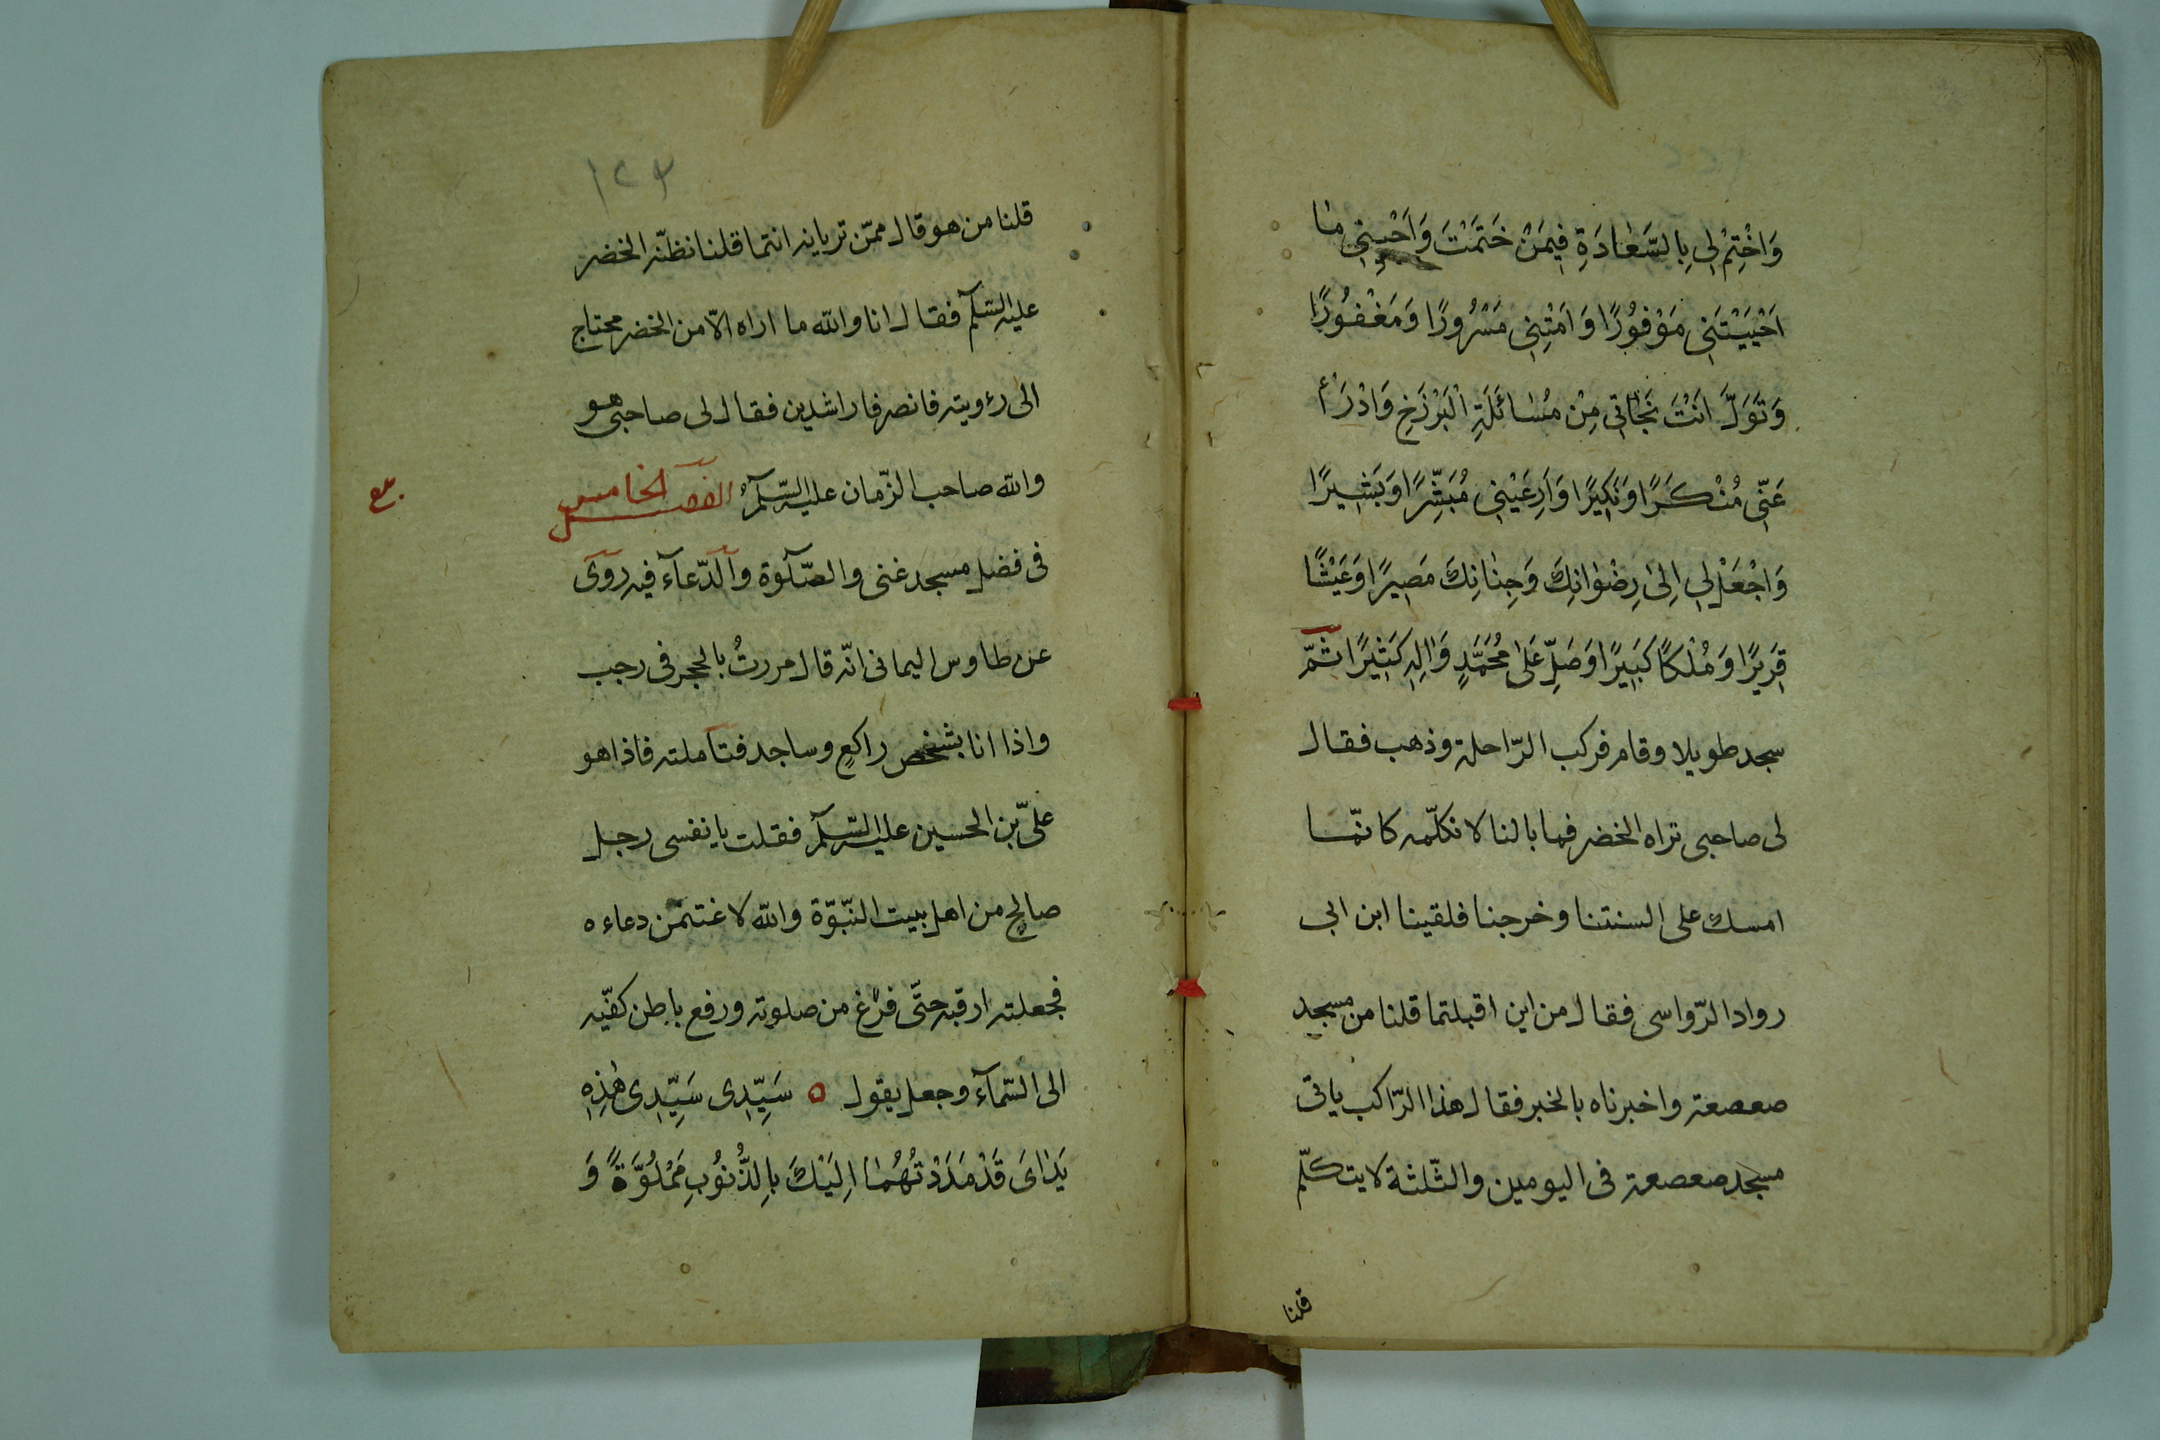 وَاخْتِمْ لِي بِالسَّعَادَةِ فِيمَنْ خَتَمْتَ وَاَحْيِنِي مَا
اَحْيَيْتَنِي مَوْفُورًا وَاَمْتِنِي مَسْرُورًا وَمَغْفُورًا
وَتَوَلَّ اَنْتَ نَجَاتِي مِنْ مُسَائَلَةِ الْبَرْزَخِ وَادْرَأْ
عَنِّي مُنْكَرًا وَنَكِيرًا وَاَرِعَيْنِي مُبَشِّرًا وَبَشِيرًا
وَاجْعَلْ لِي اِلىٰ رِضْوَانِكَ وَجِنَانِكَ مَصِيرًا وَعَيْشًا
قَرِيرًا وَمُلْكًا كَبِيرًا وَصَلِّ عَلىٰ مُحَمَّدٍ وَالِهِ كَثِيرًا ثُمَّ
سجد طويلا وقام فركب الرّاحلة وذهب فقال
لى صاحبى تراه الخضر فما بالنا لا نكلّمه كانّما
امسك على السنتنا وخرجنا فلقينا ابن ابى
رواد الرّواسى فقال من اين اقبلتما قلنا من مسجد
صعصعة واخبرناه بالخبر فقال هذا الرّاكب ياتى
مسجد صعصعة فى اليومين والثّلثة لا يتكلّم
قلنا
١٢٣
قلنا من هو قال ممّن تريانه انتما قلنا نظنّه الخضر
عليه السّلم فقال انا والله ما اراه الّا من الخضر محتاج
الى رءويته فانصرفا راشدين فقال لى صاحبى هو
والله صاحب الزّمان عليه السّلم الفصل الخامس
فى فضل مسجد غنى والصّلوة والدّعآء فيه روى
عن طاوس اليمانى انّه قال مررتُ بالحجر فى رجب
واذا انا بشخص راكعٍ وساجد فتأملته فاذا هو
علىّ بن الحسين عليه السّلم فقلت يا نفسى رجل
صالح من اهل بيت النّبوّة والله لاغتنمن دعاءه
فجعلته ارقبه حتّى فرغ من صلوته ورفع باطن كفّيه
الى السّمآء وجعل يقول ه سَيِّدِى سَيِّدِى هٰذِهِ
يَدَاىَ قَدْ مَدَدْتُهُمَا اِلَيْكَ بِالذُّنُوبِ مَمْلُوَّةً وَ